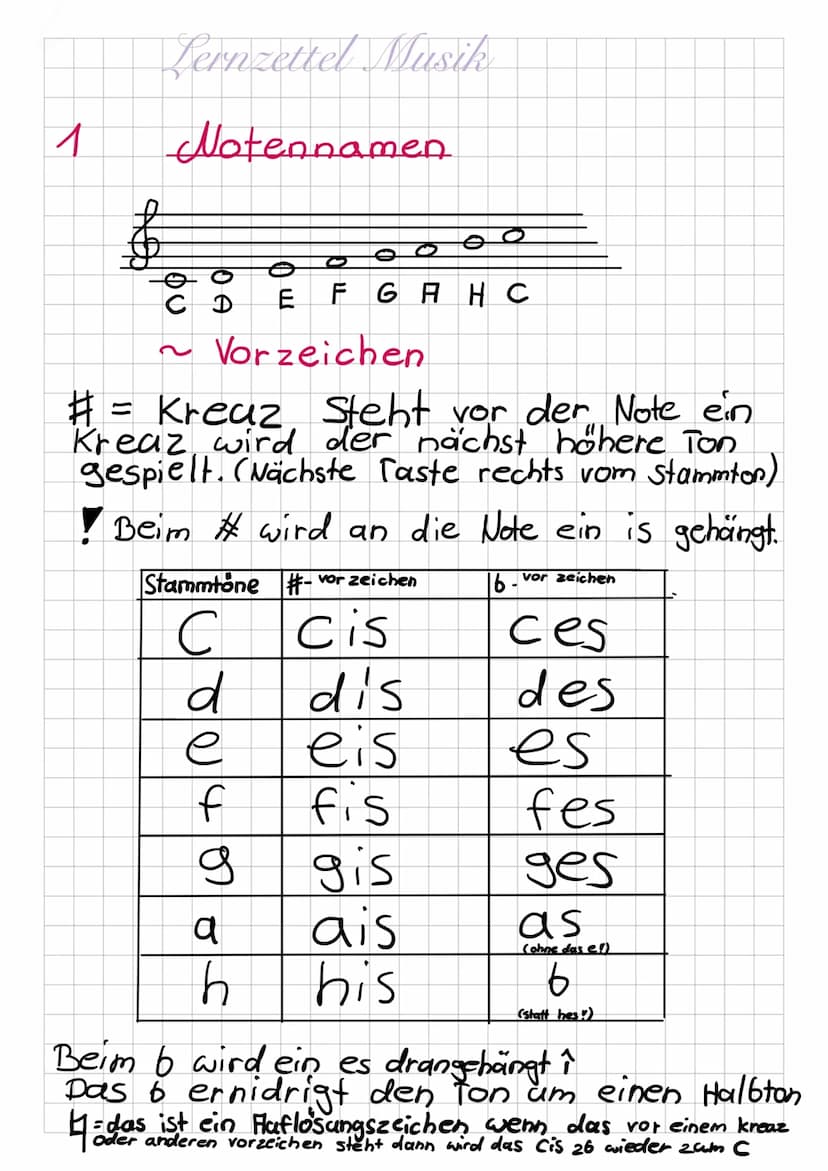 Lernzettel Musik
1 Notennamen
C D E F G A H C
~ Vorzeichen
# = Kreuz Steht vor der Note ein
Kreuz wird der nächst höhere Ton
gespielt. (Nächste Taste rechts vom Stammton)
! Beim # wird an die Note ein is gehängt.
Stammtöne #- vorzeichen b- vorzeichen
C cis ces
d dis des
e eis es
f fis fes
g gis ges
a ais as
(ohne das e!)
h his b
(statt hes!)
Beim b wird ein es drangehängt ↑
Das b ernidrigt den Ton um einen Halbton
♮ = das ist ein Auflösungszeichen wenn das vor einem kreuz
oder anderen vorzeichen steht dann wird das Cis zb wieder zum C